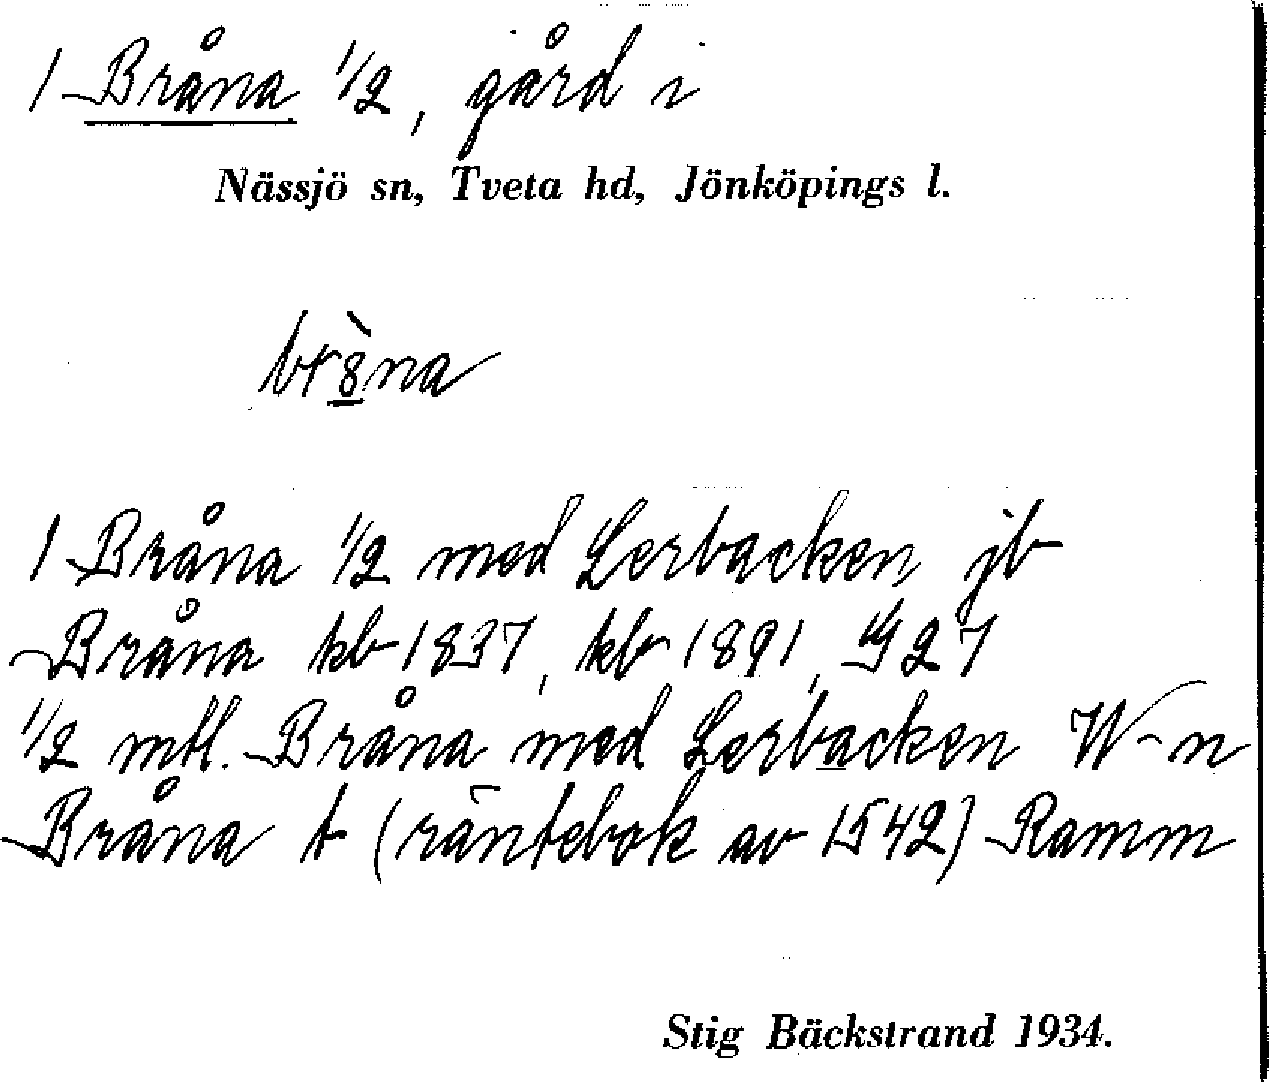 1 Bråna 1/2, gård i
Nässjö sn, Tveta hd, Jönköpings l.
br8̀na
1 Bråna 1/2 med Lerbacken jb
Bråna kb 1837, kb 1891, 27
1/2 mtl. Bråna med Lerbacken W-n
Bråna t (räntebok av 1542) Ramm
Stig Bäckstrand 1934.